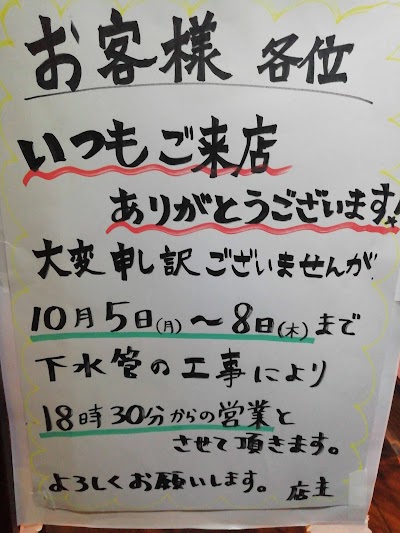 お客様 各位
いつもご来店
ありがとうございます!
大変申し訳ございませんが
10月5日(月)〜8日(木)まで
下水管の工事により
18時30分からの営業と
させて頂きます。
よろしくお願いします。 店主